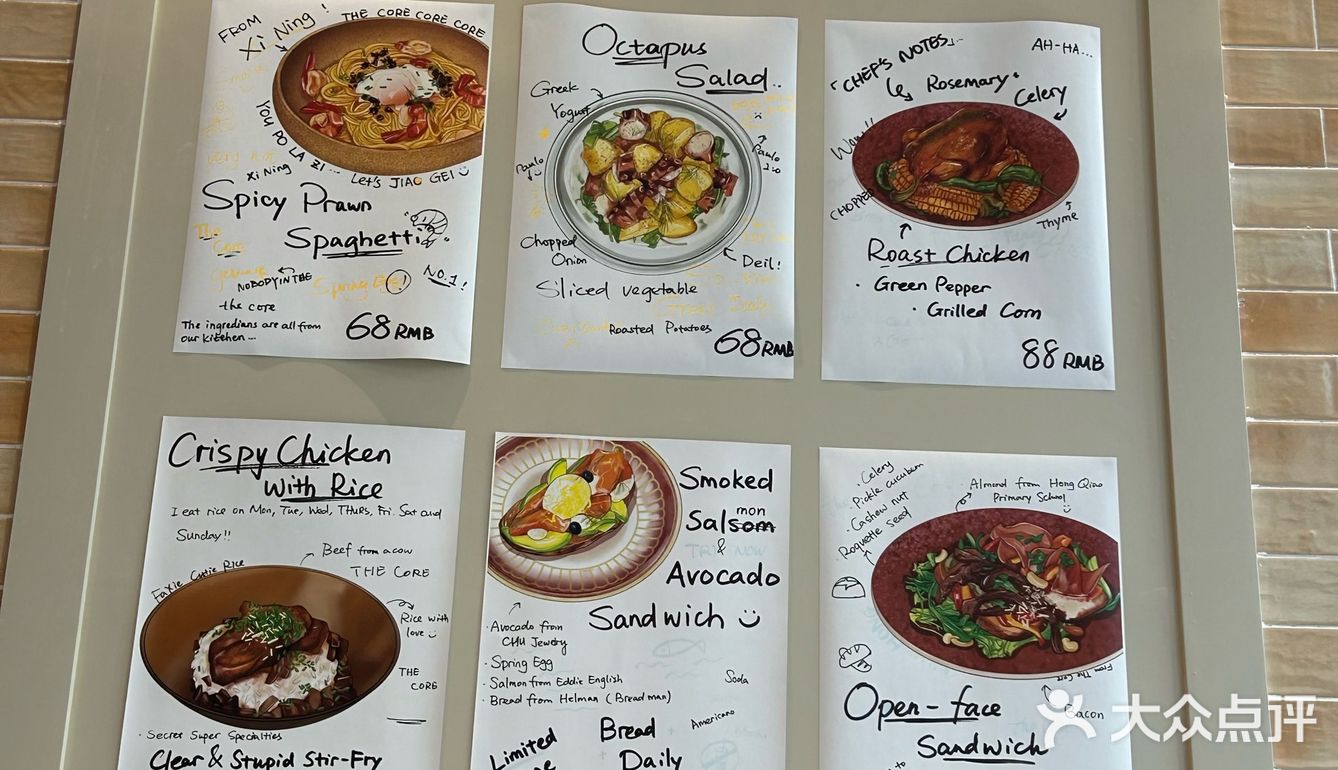 FROM
Xi Ning!
THE CORE CORE CORE
YOU PO LA ZI...
Xi Ning
Let's JIAO GEI
Spicy Prawn
Spaghetti
The
Core
NOBODY IN THE
the core
NO.1!
The ingredians are all from
our kitchen...
68 RMB
Octapus
Salad..
Greek
Yogurt
Chopped
Onion
Deil!
Sliced vegetable
Roasted Potatoes
68 RMB
"CHEF'S NOTES"...
AH-HA...
Rosemary
Celery
Wow!!
CHOPPED
Thyme
Roast Chicken
· Green Pepper
· Grilled Corn
88 RMB
Crispy Chicken
With Rice
I eat rice on Mon, Tue, Wed, THURS, Fri. Sat and
Sunday!!
Beef from a cow
THE CORE
Cutie Rice
Rice with
love
THE
CORE
· Secret Super Specialties
Clear & Stupid Stir-Fry
Smoked
Salsom
mon
&
TRY NOW
Avocado
Sandwich
· Avocado from
CHU Jewelry
· Spring Egg
· Salmon from Eddie English
· Bread from Helman (Bread man)
Soda
Americano
Limited
Bread
Daily
· Celery
· Pickle cucubum
· Cashew nut
Roquette seed
· Almond from Hong Qiao
Primary School
From The Core
Bacon
Open-face
Sandwich
大众点评